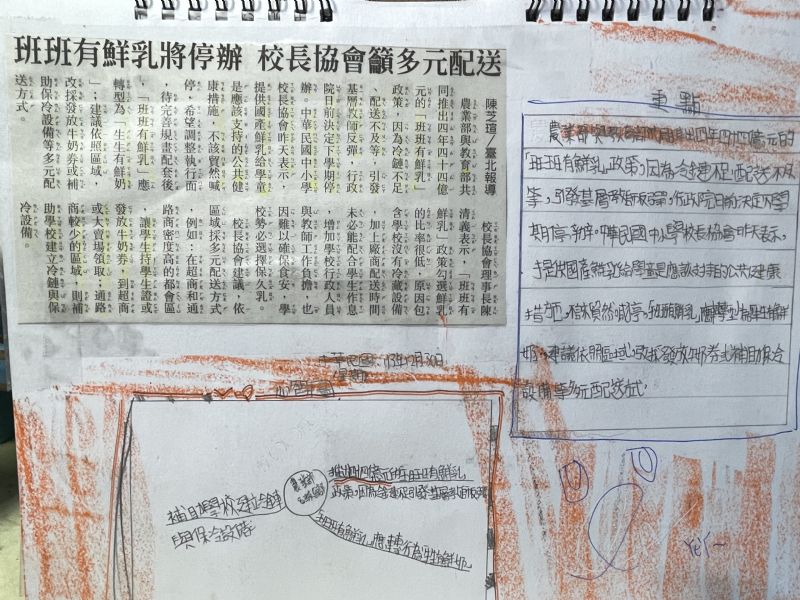 班班有鮮乳將停辦 校長協會籲多元配送
陳芝瑄／臺北報導
農業部與教育部共
同推出四年四十億
元的「班班有鮮乳」
政策，因為冷鏈不足
、配送不及等，引發
基層教師反彈，行政
院日前決定下學期停
辦。中華民國中小學
校長協會昨天表示，
提供國產鮮乳給學童
是應該支持的公共健
康措施，不該貿然喊
停，希望調整執行面
，待完善規畫配套後
，「班班有鮮乳」應
轉型為「生生有鮮奶
」；建議依照區域，
改採發放牛奶券或補
助保冷設備等多元配
送方式。
校長協會理事長陳
清義表示，「班班有
鮮乳」政策勾選鮮乳
的比率很低，原因包
含學校沒有冷藏設備
，加上廠商配送時間
未必能配合學生作息
，增加學校行政人員
與教師工作負擔，也
因難以確保食安，學
校勢必選擇保久乳。
校長協會建議，依
區域採多元配送方式
，例如：在超商和通
路商密度高的都會區
，讓學生持學生證或
發放牛奶券，到超商
或大賣場領取；通路
商較少的區域，則補
助學校建立冷鏈與保
冷設備。
重點
農業部與教育部共同推出四年四十億元的
「班班有鮮乳」政策，因為冷鏈不足、配送不及
等，引發基層教師反彈，行政院日前決定下學
期停辦。中華民國中小學校長協會昨天表示，
提供國產鮮乳給學童是應該支持的公共健康
措施，不該貿然喊停，「班班有鮮乳」應轉型為「生生有鮮
奶」；建議依照區域，改採發放牛奶券或補助保冷
設備等多元配送方式。
中華民國113年12月30日
心智圖
推出四年四十億元的班班有鮮乳
政策，因為冷鏈不足引發基層教師反彈
補助學校建立冷鏈
與保冷設備
班班有鮮乳應轉行為生生有鮮奶
Yey~